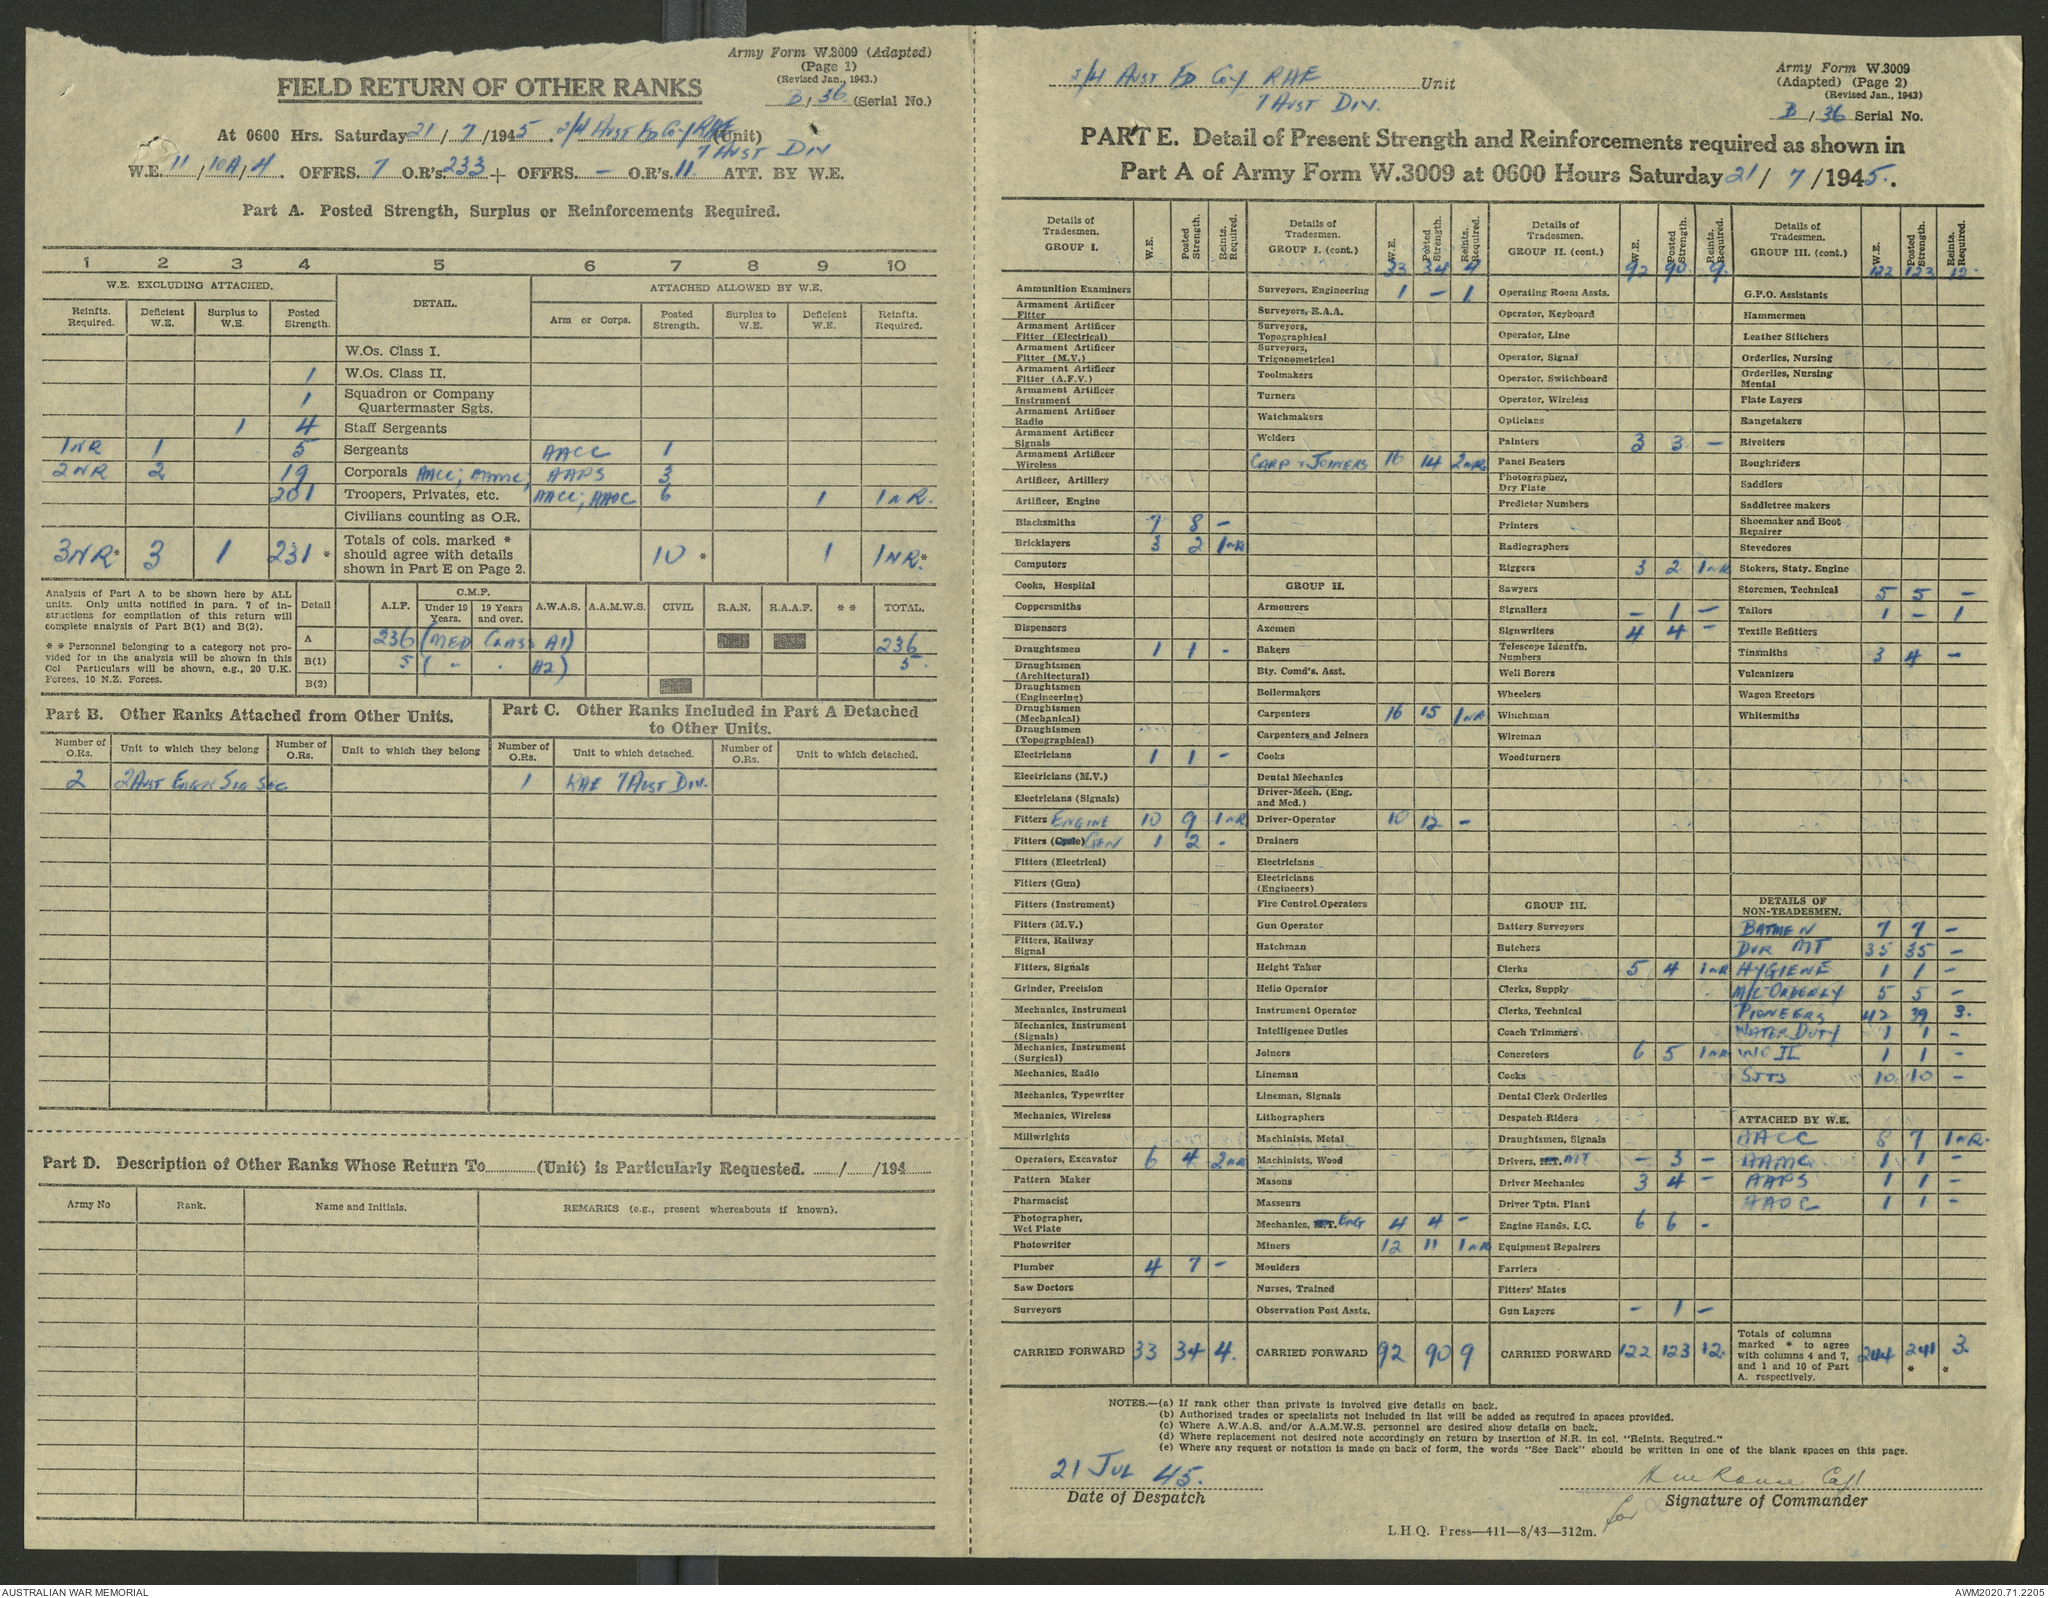 Army Form W.3009 (Adapted)
(Page 1)
(Revised Jan., 1943.)
FIELD RETURN OF OTHER RANKS
B / 36 (Serial No.)
At 0600 Hrs. Saturday 21 / 7 /1945. 2/4 AUST FD COY RAE (Unit)
7 AUST DIV
W.E. 11 / 10A / 4 . OFFRS. 7 O.R's. 233 + OFFRS. — O.R's. 11 ATT. BY W.E.
Part A. Posted Strength, Surplus or Reinforcements Required.
1 2 3 4 5 6 7 8 9 10
W.E. EXCLUDING ATTACHED. DETAIL. ATTACHED ALLOWED BY W.E.
Reinfts. Required. Deficient W.E. Surplus to W.E. Posted Strength. Arm or Corps. Posted Strength. Surplus to W.E. Deficient W.E. Reinfts. Required.
W.Os. Class I.
1 W.Os. Class II.
1 Squadron or Company Quartermaster Sgts.
1 4 Staff Sergeants
1NR 1 5 Sergeants AACC 1
2NR 2 19 Corporals AACC; AAMC; AAPS 3
201 Troopers, Privates, etc. AACC; AAOC 6 1 1NR.
Civilians counting as O.R.
3NR* 3 1 231 * Totals of cols. marked * should agree with details shown in Part E on Page 2. 10 * 1 1NR.*
Analysis of Part A to be shown here by ALL units. Only units notified in para. 7 of instructions for compilation of this return will complete analysis of Part B(1) and B(2).
* * Personnel belonging to a category not provided for in the analysis will be shown in this Col Particulars will be shown, e.g., 20 U.K. Forces, 10 N.Z. Forces.
Detail A.I.F. C.M.F. Under 19 Years. 19 Years and over. A.W.A.S. A.A.M.W.S. CIVIL R.A.N. R.A.A.F. * * TOTAL.
A 236 (MED CLASS A1) 236
B(1) 5 ( " " A2) 5.
B(2)
Part B. Other Ranks Attached from Other Units.
Part C. Other Ranks Included in Part A Detached to Other Units.
Number of O.Rs. Unit to which they belong Number of O.Rs. Unit to which they belong Number of O.Rs. Unit to which detached. Number of O.Rs. Unit to which detached.
2 2 AUST ENGR SIG SEC 1 RAE 7 AUST DIV.
Part D. Description of Other Ranks Whose Return To............(Unit) is Particularly Requested. ....../....../194......
Army No Rank. Name and Initials. REMARKS (e.g., present whereabouts if known).
2/4 AUST FD COY RAE Unit
7 AUST DIV.
Army Form W.3009
(Adapted) (Page 2)
(Revised Jan., 1943)
B / 36 Serial No.
PART E. Detail of Present Strength and Reinforcements required as shown in
Part A of Army Form W.3009 at 0600 Hours Saturday 21 / 7 /1945.
Details of Tradesmen. GROUP I. W.E. Posted Strength. Reints. Required.
Ammunition Examiners
Armament Artificer Fitter
Armament Artificer Fitter (Electrical)
Armament Artificer Fitter (M.V.)
Armament Artificer Fitter (A.F.V.)
Armament Artificer Instrument
Armament Artificer Radio
Armament Artificer Signals
Armament Artificer Wireless
Artificer, Artillery
Artificer, Engine
Blacksmiths 7 8 –
Bricklayers 3 2 1NR
Computors
Cooks, Hospital
Coppersmiths
Dispensers
Draughtsmen 1 1 -
Draughtsmen (Architectural)
Draughtsmen (Engineering)
Draughtsmen (Mechanical)
Draughtsmen (Topographical)
Electricians 1 1 -
Electricians (M.V.)
Electricians (Signals)
Fitters ENGINE 10 9 1NR
Fitters (Cycle) GEN 1 2 -
Fitters (Electrical)
Fitters (Gun)
Fitters (Instrument)
Fitters (M.V.)
Fitters, Railway Signal
Fitters, Signals
Grinder, Precision
Mechanics, Instrument
Mechanics, Instrument (Signals)
Mechanics, Instrument (Surgical)
Mechanics, Radio
Mechanics, Typewriter
Mechanics, Wireless
Millwrights
Operators, Excavator 6 4 2NR
Pattern Maker
Pharmacist
Photographer, Wet Plate
Photowriter
Plumber 4 7 -
Saw Doctors
Surveyors
CARRIED FORWARD 33 34 4.
Details of Tradesmen. GROUP I. (cont.) W.E. Posted Strength. Reints. Required.
33 34 4
Surveyors, Engineering 1 – 1
Surveyors, R.A.A.
Surveyors, Topographical
Surveyors, Trigonometrical
Toolmakers
Turners
Watchmakers
Welders
CARP & JOINERS 16 14 2NR
GROUP II.
Armourers
Axemen
Bakers
Bty. Comd's. Asst.
Boilermakers
Carpenters 16 15 1NR
Carpenters and Joiners
Cooks
Dental Mechanics
Driver-Mech. (Eng. and Med.)
Driver-Operator 10 12 –
Drainers
Electricians
Electricians (Engineers)
Fire Control Operators
Gun Operator
Hatchman
Height Taker
Helio Operator
Instrument Operator
Intelligence Duties
Joiners
Lineman
Lineman, Signals
Lithographers
Machinists, Metal
Machinists, Wood
Masons
Masseurs
Mechanics, M.T. ENG 4 4 –
Miners 12 11 1NR
Moulders
Nurses, Trained
Observation Post Assts.
CARRIED FORWARD 92 90 9
Details of Tradesmen. GROUP II. (cont.) W.E. Posted Strength. Reints. Required.
92 90 9
Operating Room Assts.
Operator, Keyboard
Operator, Line
Operator, Signal
Operator, Switchboard
Operator, Wireless
Opticians
Painters 3 3 –
Panel Beaters
Photographer, Dry Plate
Predictor Numbers
Printers
Radiographers
Riggers 3 2 1NR
Sawyers
Signallers – 1 –
Signwriters 4 4 –
Telescope Identfn. Numbers
Well Borers
Wheelers
Winchman
Wireman
Woodturners
GROUP III.
Battery Surveyors
Butchers
Clerks 5 4 1NR
Clerks, Supply
Clerks, Technical
Coach Trimmers
Concretors 6 5 1NR
Cooks
Dental Clerk Orderlies
Despatch Riders
Draughtsmen, Signals
Drivers, MT – 3 –
Driver Mechanics 3 4 –
Driver Tptn. Plant
Engine Hands, I.C. 6 6 -
Equipment Repairers
Farriers
Fitters' Mates
Gun Layers – 1 –
CARRIED FORWARD 122 123 12.
Details of Tradesmen. GROUP III. (cont.) W.E. Posted Strength. Reints. Required.
122 123 12.
G.P.O. Assistants
Hammermen
Leather Stitchers
Orderlies, Nursing
Orderlies, Nursing Mental
Plate Layers
Rangetakers
Rivetters
Roughriders
Saddlers
Saddletree makers
Shoemaker and Boot Repairer
Stevedores
Stokers, Staty. Engine
Storemen, Technical 5 5 –
Tailors 1 – 1
Textile Refitters
Tinsmiths 3 4 –
Vulcanizers
Wagon Erectors
Whitesmiths
DETAILS OF NON-TRADESMEN.
BATMEN 7 7 –
DVR MT 35 35 –
HYGIENE 1 1 –
M/C ORDERLY 5 5 –
PIONEERS 42 39 3.
WATER DUTY 1 1 –
WO II 1 1 –
SJTS 10 10 –
ATTACHED BY W.E.
AACC 8 7 1NR.
AAMC 1 1 –
AAPS 1 1 –
AAOC 1 1 –
Totals of columns marked * to agree with columns 4 and 7, and 1 and 10 of Part A. respectively. 244 241 * 3. *
NOTES.—(a) If rank other than private is involved give details on back.
(b) Authorised trades or specialists not included in list will be added as required in spaces provided.
(c) Where A.W.A.S. and/or A.A.M.W.S. personnel are desired show details on back.
(d) Where replacement not desired note accordingly on return by insertion of N.R. in col. "Reints. Required."
(e) Where any request or notation is made on back of form, the words "See Back" should be written in one of the blank spaces on this page.
21 JUL 45.
Date of Despatch
Capt
for Signature of Commander
L.H.Q. Press—411—8/43—312m.
AUSTRALIAN WAR MEMORIAL
AWM2020.71.2205